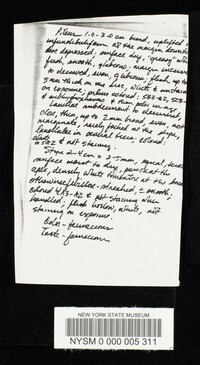 Pileus 1.0-3.0 cm broad, uplifted
infundibuliform at the margin
depressed, surface dry, "greasy" when
fresh, smooth, glabrous, margin incurved
to decurved, even, glabrous, flesh up to
3 mm thick on the disc, white & unchanging
on exposure, colored 5B3-A2, 5C3-
Lamellae subdecurrent to decurrent,
close, up to 2 mm broad, edges not
marginate, forked at the
lamellulae in several tiers, colored:
& not staining.
Stipe 2-4 cm x 2-5 mm, equal,
surface moist to dry, at the
apex, densely white tomentose at the base
otherwise attached, smooth,
colored & not staining when
handled, flesh hollow, white, not
staining on exposure.
Odor - farinaceous
Taste - farinaceous
NEW YORK STATE MUSEUM
NYSM 0 000 005 311